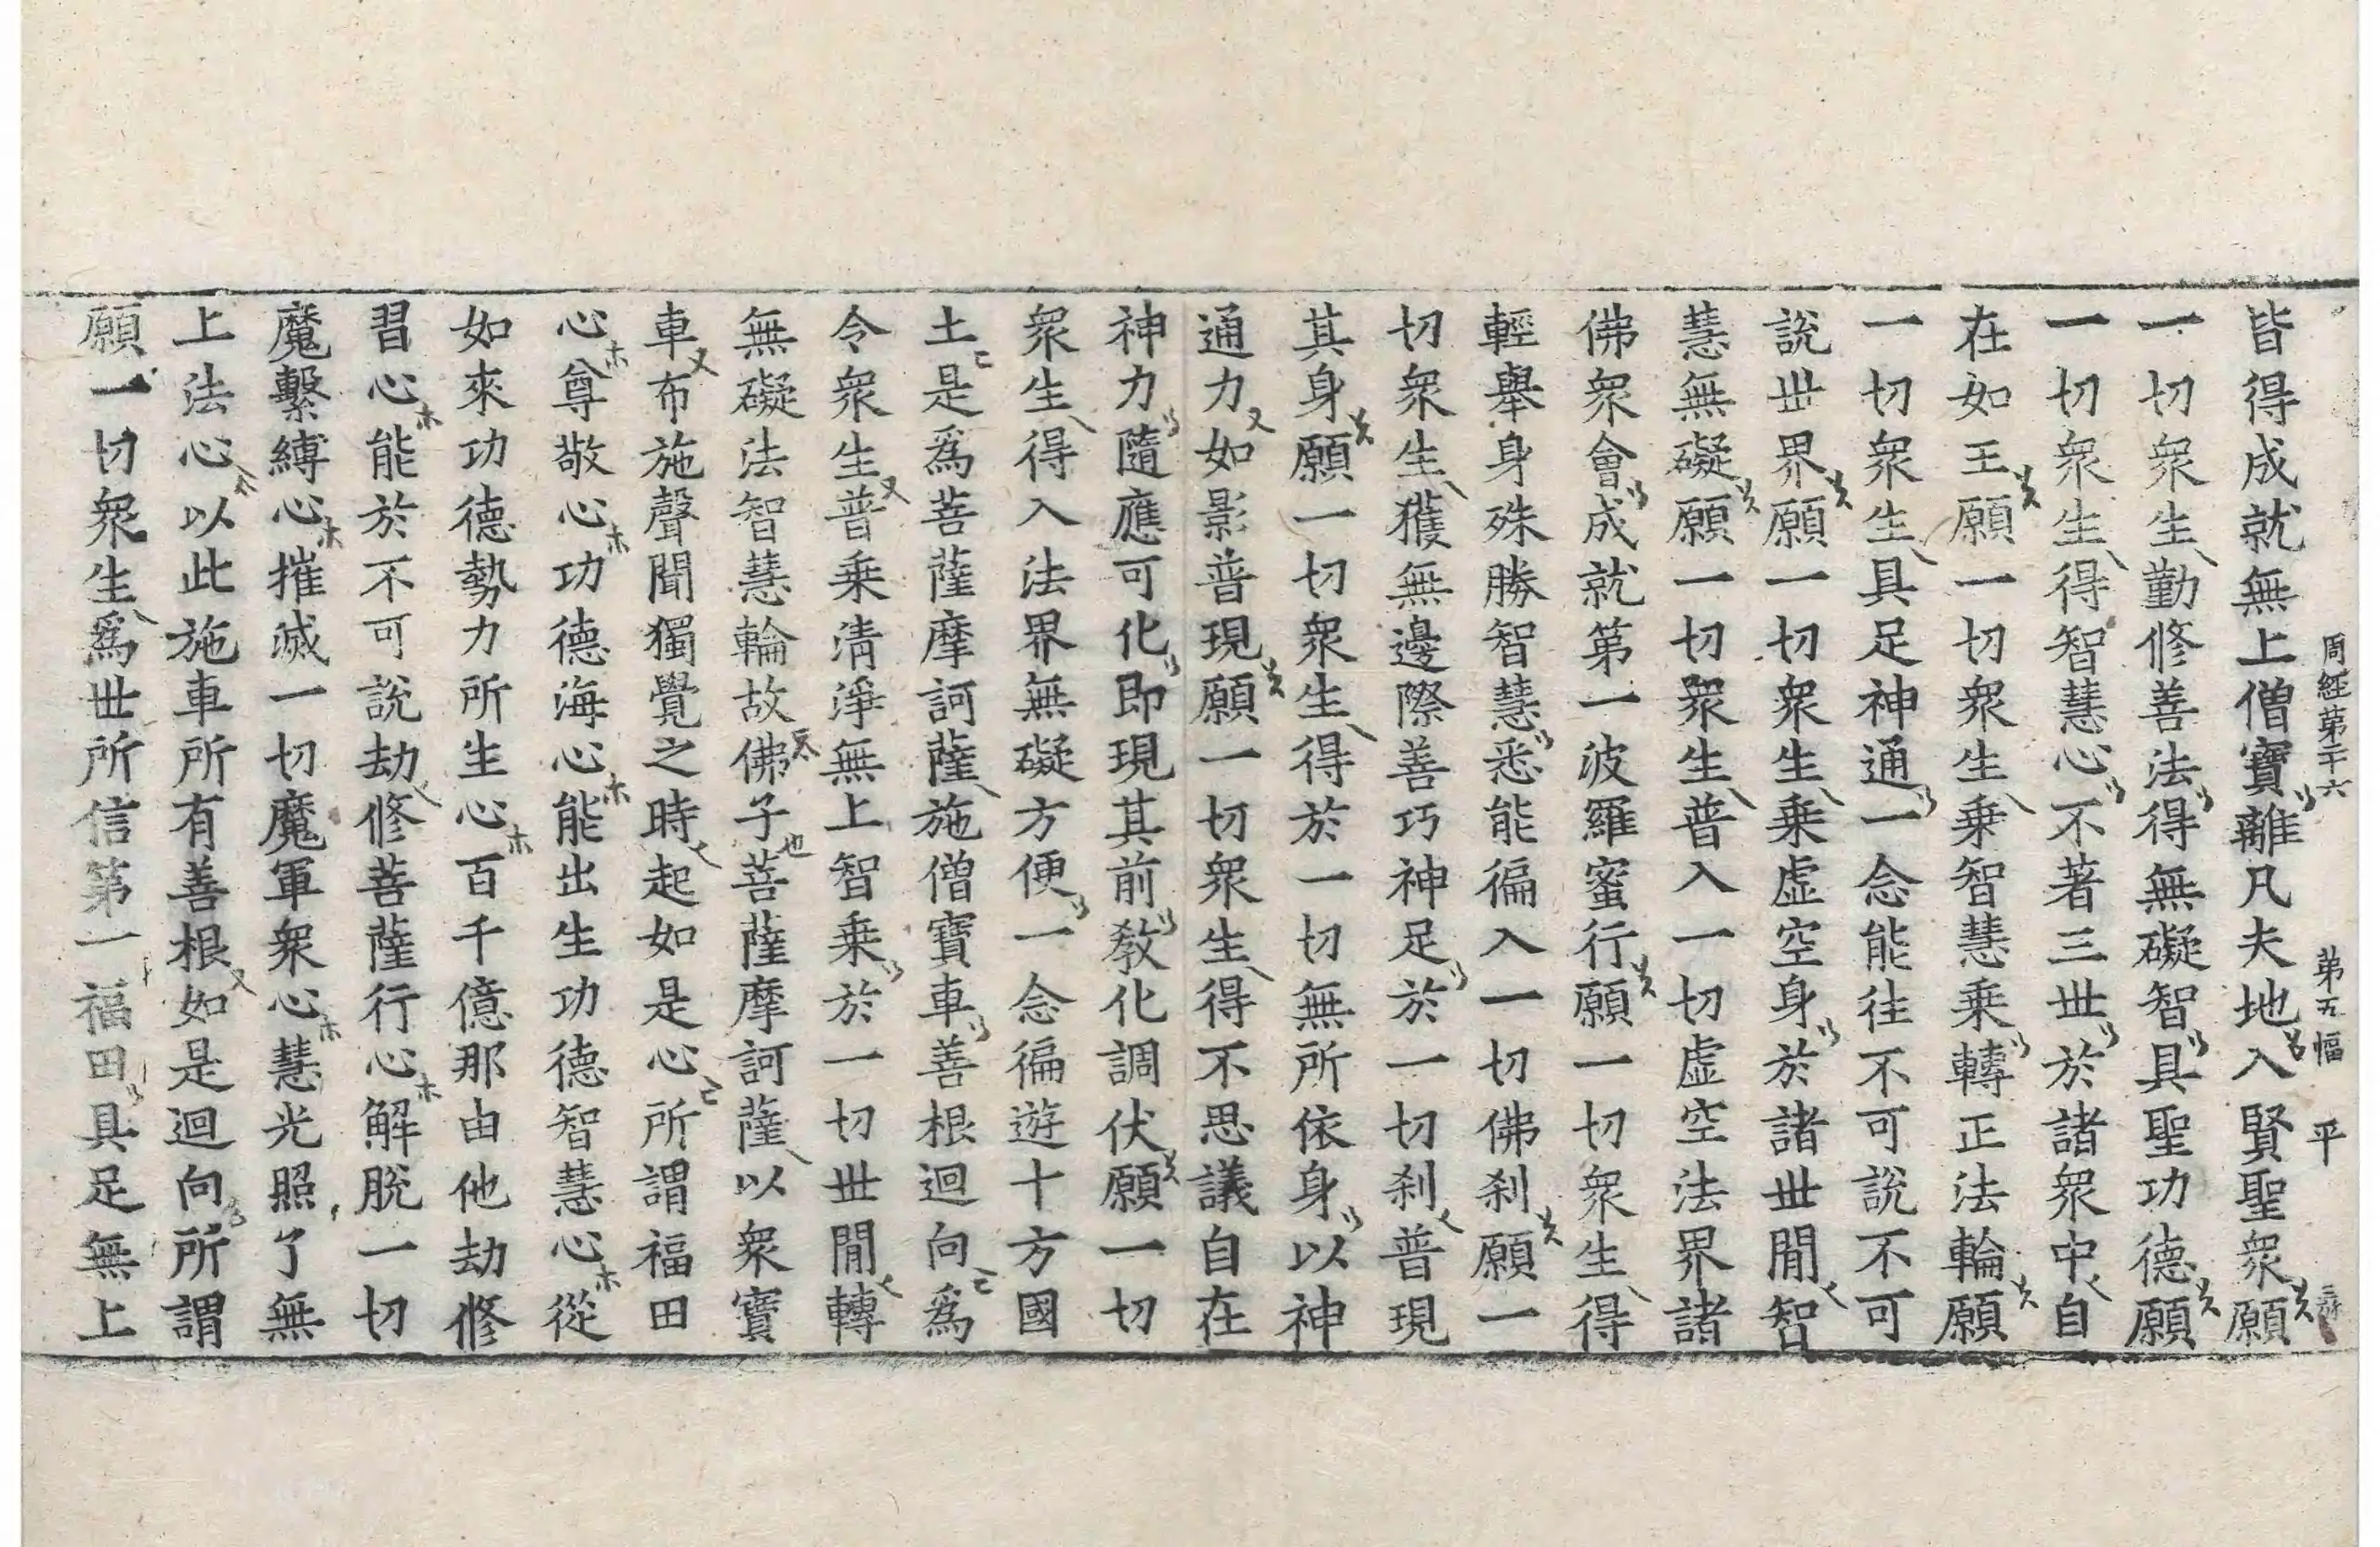 周經第二十六 第五幅 平
皆得成就無上僧寶離凡夫地入賢聖衆願
一切衆生勤修善法得無礙智具聖功德願
一切衆生得智慧心不著三世於諸衆中自
在如王願一切衆生乗智慧乗轉正法輪願
一切衆生具足神通一念能往不可說不可
說世界願一切衆生乗虛空身於諸世閒智
慧無礙願一切衆生普入一切虛空法界諸
佛衆會成就第一波羅蜜行願一切衆生得
輕舉身殊勝智慧悉能徧入一切佛刹願一
切衆生獲無邊際善巧神足於一切刹普現
其身願一切衆生得於一切無所依身以神
通力如影普現願一切衆生得不思議自在
神力隨應可化即現其前教化調伏願一切
衆生得入法界無礙方便一念徧遊十方國
土是爲菩薩摩訶薩施僧寶車善根迴向爲
令衆生普乗淸淨無上智乗於一切世閒轉
無礙法智慧輪故佛子菩薩摩訶薩以衆寶
車布施聲聞獨覺之時起如是心所謂福田
心尊敬心功德海心能出生功德智慧心從
如來功德勢力所生心百千億那由他劫修
習心能於不可說劫修菩薩行心解脫一切
魔繫縛心摧滅一切魔軍衆心慧光照了無
上法心以此施車所有善根如是迴向所謂
願一切衆生爲世所信第一福田具足無上